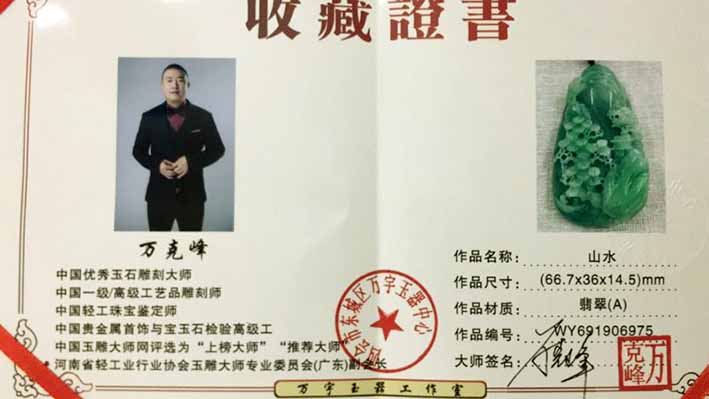 收藏證書
万克峰
中国优秀玉石雕刻大师
中国一级/高级工艺品雕刻师
中国轻工珠宝鉴定师
中国贵金属首饰与宝玉石检验高级工
中国玉雕大师网评选为“上榜大师”“推荐大师”
河南省轻工业行业协会玉雕大师专业委员会(广东)副会长
作品名称： 山水
作品尺寸： (66.7x36x14.5)mm
作品材质： 翡翠(A)
作品编号： WY691906975
大师签名：
万克峰
市东城区万宇玉器中心
万宇玉器工作室